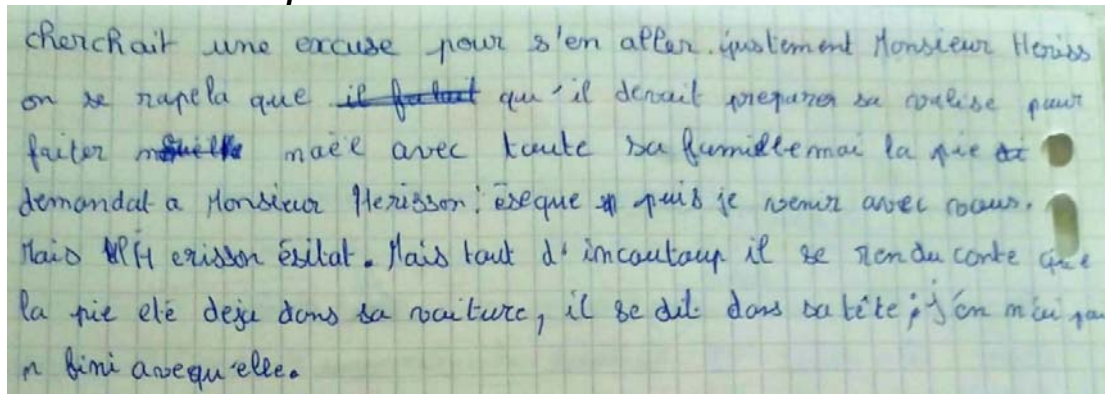 cherchait une excuse pour s'en aller. justement Monsieur Heriss
on se rapela que il falait qu'il devait preparer sa valise pour
faiter noèl avec toute sa famille mai la pie
demandat a Monsieur Herisson: èseque puis je venir avec vous.
Mais H erisson ésitat. Mais tout d'incoutoup il se rendu conte que
la pie eté deja dans sa voiture, il se dit dans sa tête; j'en m'ai pa
n fini avequ'elle.